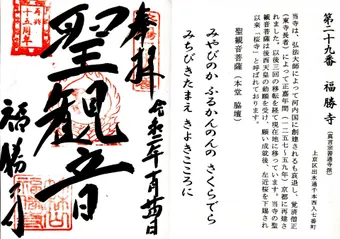 第二十九番 福勝寺(真言宗善通寺派)
上京区出水通千本西入七番町
当寺は、弘法大師によって河内国に創建されるも衰退し、覚済僧正
(東寺長者)によって正嘉年間(一二五七~五九年)京都に再建さ
れました。以後三回の移転を経て現在地に移っています。当寺の聖
観音菩薩は後西天皇の勅願を受け、願い成就後、左近桜を下賜され
以来、「桜寺」と呼ばれております。
聖観音菩薩(本堂 脇壇)
みやびのか ふるかんのんの さくらでら
みちびきたまえ きよきこころに
奉拝
聖観音
福勝寺